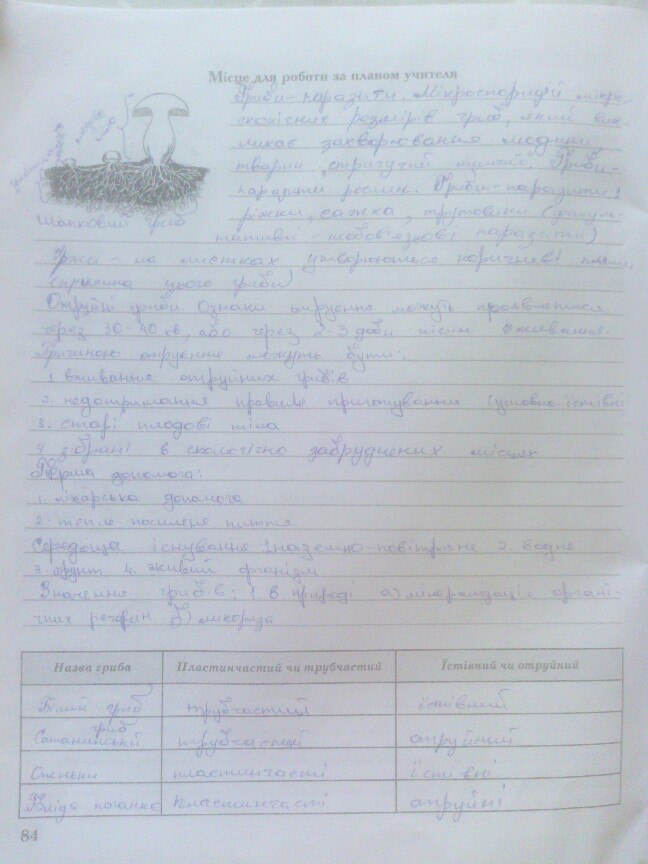 Місце для роботи за планом учителя
Гриби-паразити. Мікроспоридії мікро-
скопічних розмірів гриб, який вик-
ликає захворювання людини,
тварин "стригучий лишай". Гриби-
паразити рослин. Гриби-паразити:
ріжки, сажка, трутовики (факуль-
тативні - необов'язкові паразити)
плодове
тіло
Шапковий гриб
Іржа - на листках утворюються коричневі плями
спричина цього гриби
Отруйні гриби. Ознаки отруєння можуть проявлятися
через 30-40 хв, або через 2-3 доби після вживання.
Причиною отруєння можуть бути:
1 вживання отруйних грибів
2. недотримання правил приготування (умовно-їстівні
3. старі плодові тіла
4. зібрані в екологічно забруднених місцях
Перша допомога:
1. лікарська допомога
2. тепле посилене пиття
Середоща існування 1 наземно-повітряне 2. водне
3. грунт 4. живий організм
Значення грибів: 1. в природі а) мінералізація органі-
чних речовин б) мікориза
Назва гриба Пластинчастий чи трубчастий Їстівний чи отруйний
Білий гриб трубчастий їстівний
Сатанинський гриб трубчастий отруйний
Опеньки пластинчасті їстівні
Бліда поганка пластинчасті отруйні
84